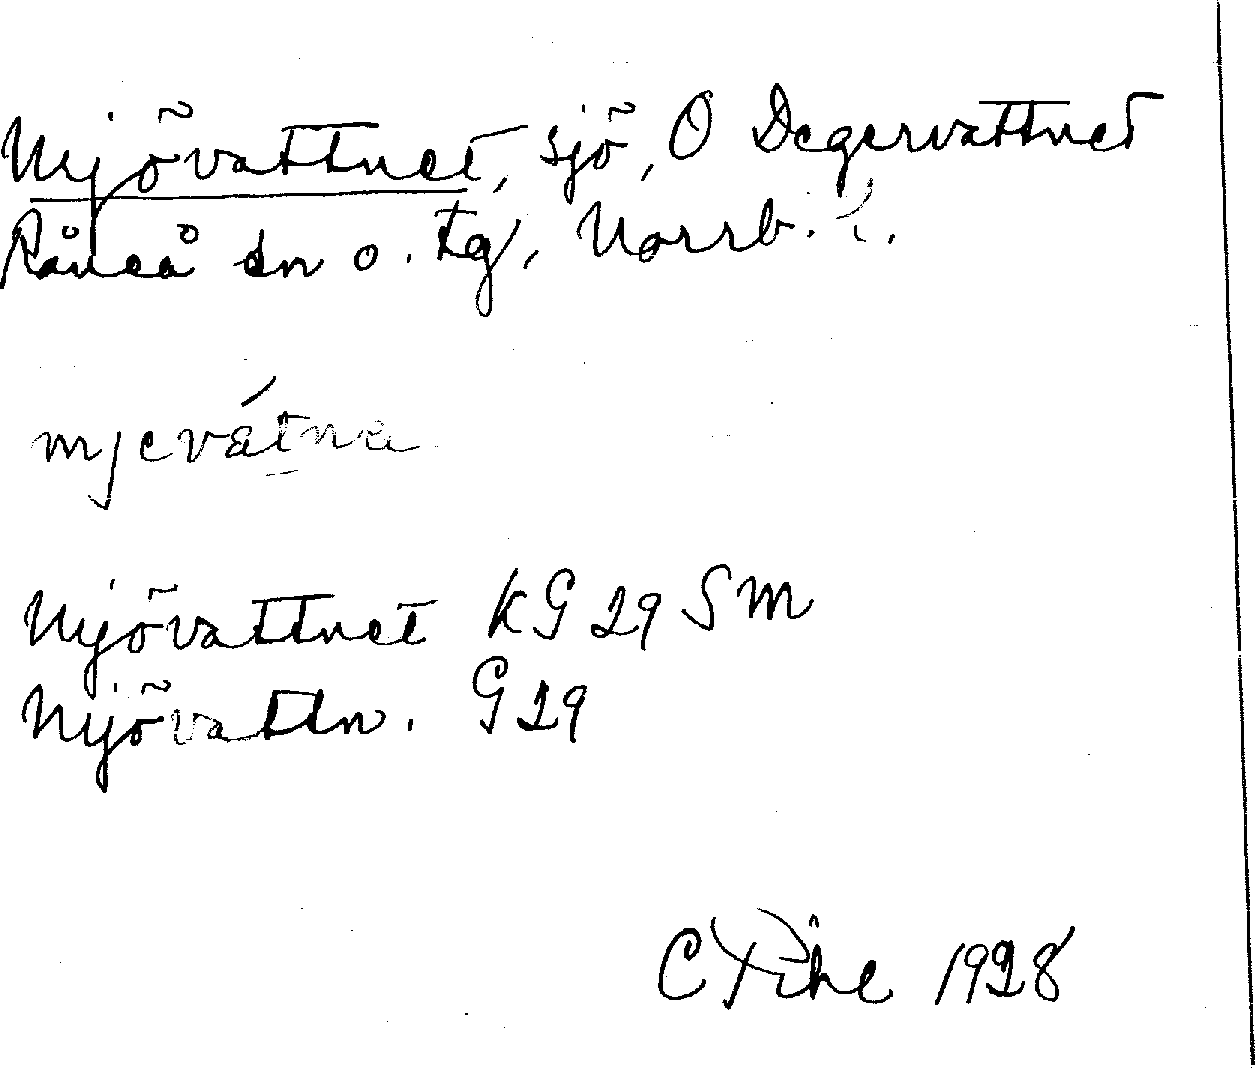 Mjövattnet, sjö, O Degervattnet
Råneå sn o. tg, Norrb. l.
mjevátna
Mjövattnet KG 29 SM
Mjövattn. G 29
C Pihl 1928